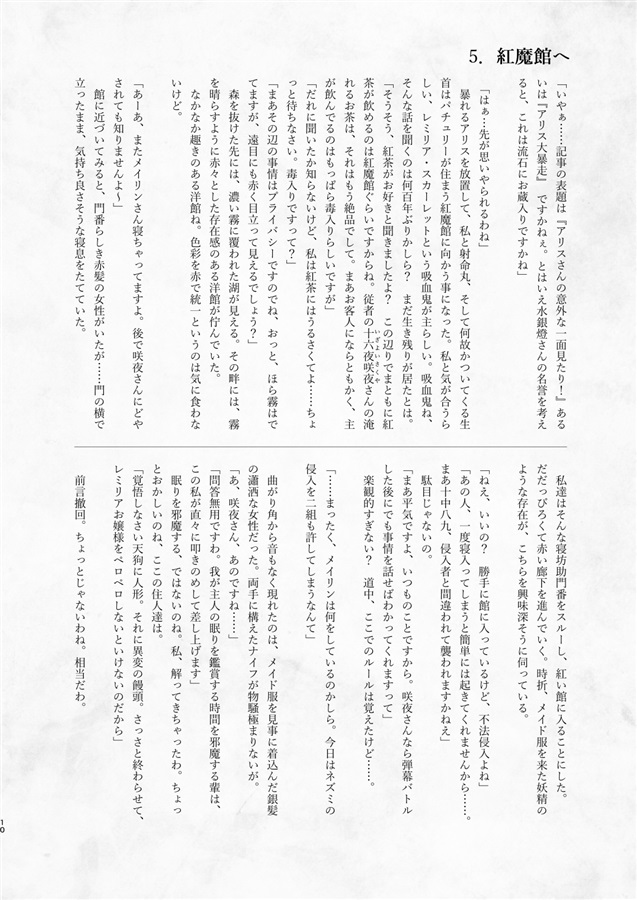 5．紅魔館へ
「いやぁ……記事の表題は『アリスさんの意外な一面見たり！』ある
いは『アリス大暴走』　ですかねぇ。とはいえ水銀燈さんの名誉を考え
ると、これは流石にお蔵入りですかね」
「はぁ…先が思いやられるわね」
暴れるアリスを放置して、私と射命丸、そして何故かついてくる生
首はパチュリーが住まう紅魔館に向かう事になった。私と気が合うら
しい、レミリア・スカーレットという吸血鬼が主らしい。吸血鬼ね、
そんな話を聞くのは何百年ぶりかしら？　まだ生き残りが居たとは。
「そうそう、紅茶がお好きと聞きましたよ？　この辺りでまともに紅
茶が飲めるのは紅魔館ぐらいですからね。従者の十六夜咲夜さんの淹
いざよいさくや
れるお茶は、それはもう絶品でして。まあお客人にならともかく、主
が飲んでるのはもっぱら毒入りらしいですが」
「だれに聞いたか知らないけど、私は紅茶にはうるさくてよ……ちょ
っと待ちなさい。毒入りですって？」
「まあその辺の事情はプライバシーですのでね、おっと、ほら霧はで
てますが、遠目にも赤く目立って見えるでしょう？」
森を抜けた先には、濃い霧に覆われた湖が見える。その畔には、霧
を晴らすように赤々とした存在感のある洋館が佇んでいた。
なかなか趣きのある洋館ね。色彩を赤で統一というのは気に食わな
いけど。
「あーあ、またメイリンさん寝ちゃってますよ。後で咲夜さんにどや
されても知りませんよ～」
館に近づいてみると、門番らしき赤髪の女性がいたが……門の横で
立ったまま、気持ち良さそうな寝息をたてていた。
私達はそんな寝坊助門番をスルーし、紅い館に入ることにした。
だだっぴろくて赤い廊下を進んでいく。時折、メイド服を来た妖精の
ような存在が、こちらを興味深そうに伺っている。
「ねえ、いいの？　勝手に館に入っているけど、不法侵入よね」
「あの人、一度寝入ってしまうと簡単には起きてくれませんから……。
まあ十中八九、侵入者と間違われて襲われますかねえ」
駄目じゃないの。
「まあ平気ですよ、いつものことですから。咲夜さんなら弾幕バトル
した後にでも事情を話せばわかってくれますって」
楽観的すぎない？　道中、ここでのルールは覚えたけど……。
「……まったく、メイリンは何をしているのかしら。今日はネズミの
侵入を二組も許してしまうなんて」
曲がり角から音もなく現れたのは、メイド服を見事に着込んだ銀髪
の瀟洒な女性だった。両手に構えたナイフが物騒極まりないが。
「あ、咲夜さん、あのですね……」
「問答無用ですわ。我が主人の眠りを鑑賞する時間を邪魔する輩は、
この私が直々に叩きのめして差し上げます」
眠りを邪魔する、ではないのね。私、解ってきちゃったわ。ちょっ
とおかしいのね、ここの住人達は。
「覚悟しなさい天狗に人形。それに異変の饅頭。さっさと終わらせて、
レミリアお嬢様をペロペロしないといけないのだから」
前言撤回。ちょっとじゃないわね。相当だわ。
10